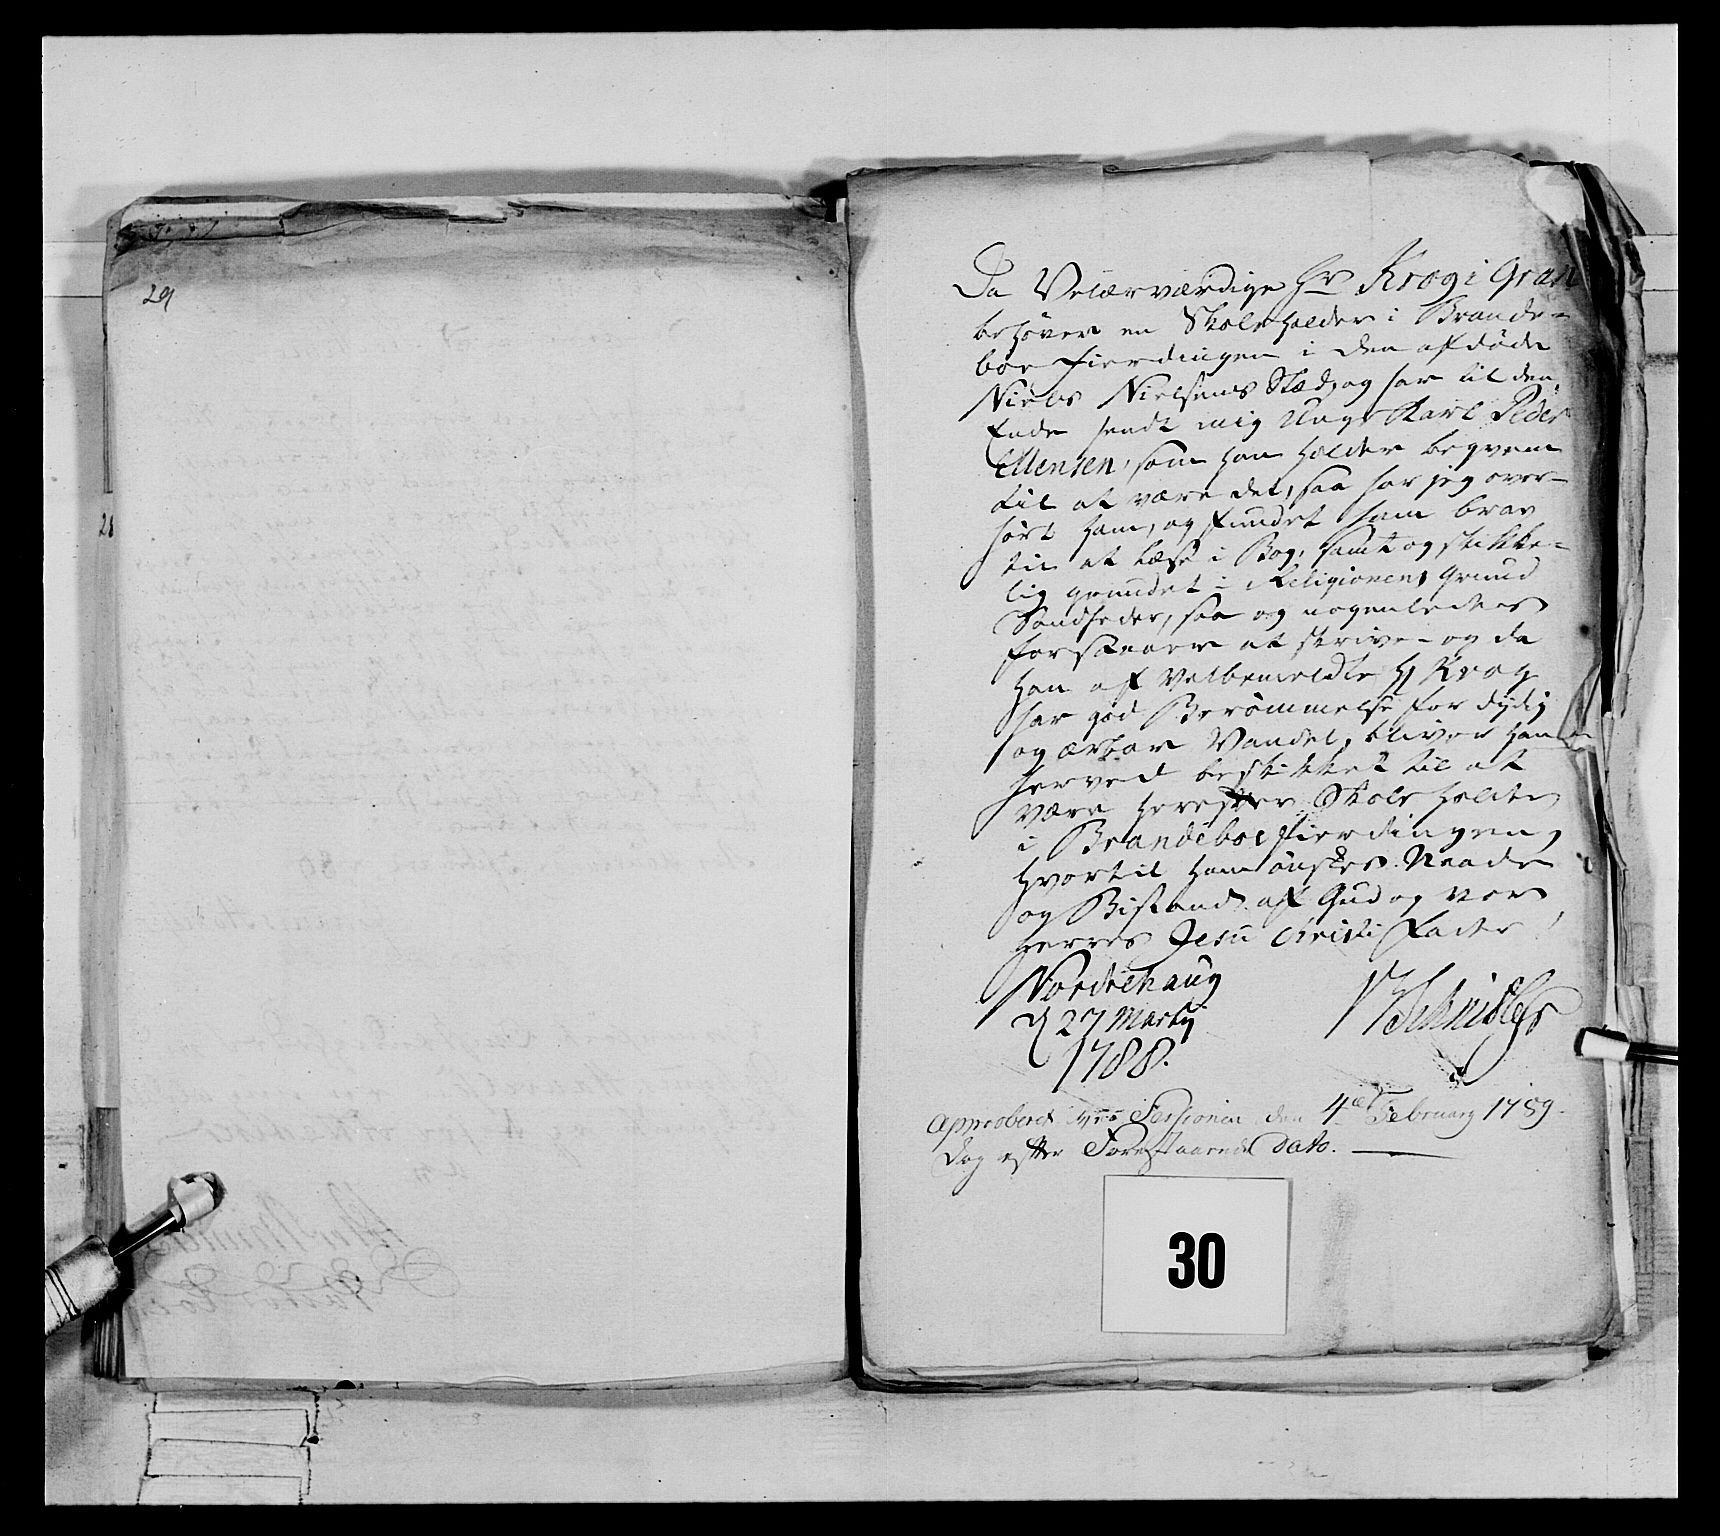 29
28
Da Velærværdige Hr Krog i Gran
behøver en Skoleholder i Brande-
boe Fierdingen i den afdøde
Niels Nielsens Stæd, og har til den
Ende sendt mig Unge Karl Peder
Ellensen, som han holder beqvem
til at være det, saa har jeg over-
hørt ham, og fundet ham brav
til at læse i Bog, samt og skikke-
lig grundet i Religionens Grund
Sandheder, saa og nogenledes
forstaaer at skrive - og da
han af Velbemeldte Hr Krog
har god Berømmelse for dydig
og ærbar Vandel, bliver han
herved beskikket til at
være herefter Skoleholder
i Brandeboe fierdingen,
hvortil ham ønskes Naade
og Bistand af Gud og vor
Herres Jesu Christi Fader!
Nordrehaug
d 27 Martij
1788.
Approberet ved Sessionen den 4de Februarij 1789.
Dog efter Forestaaende dato.
30